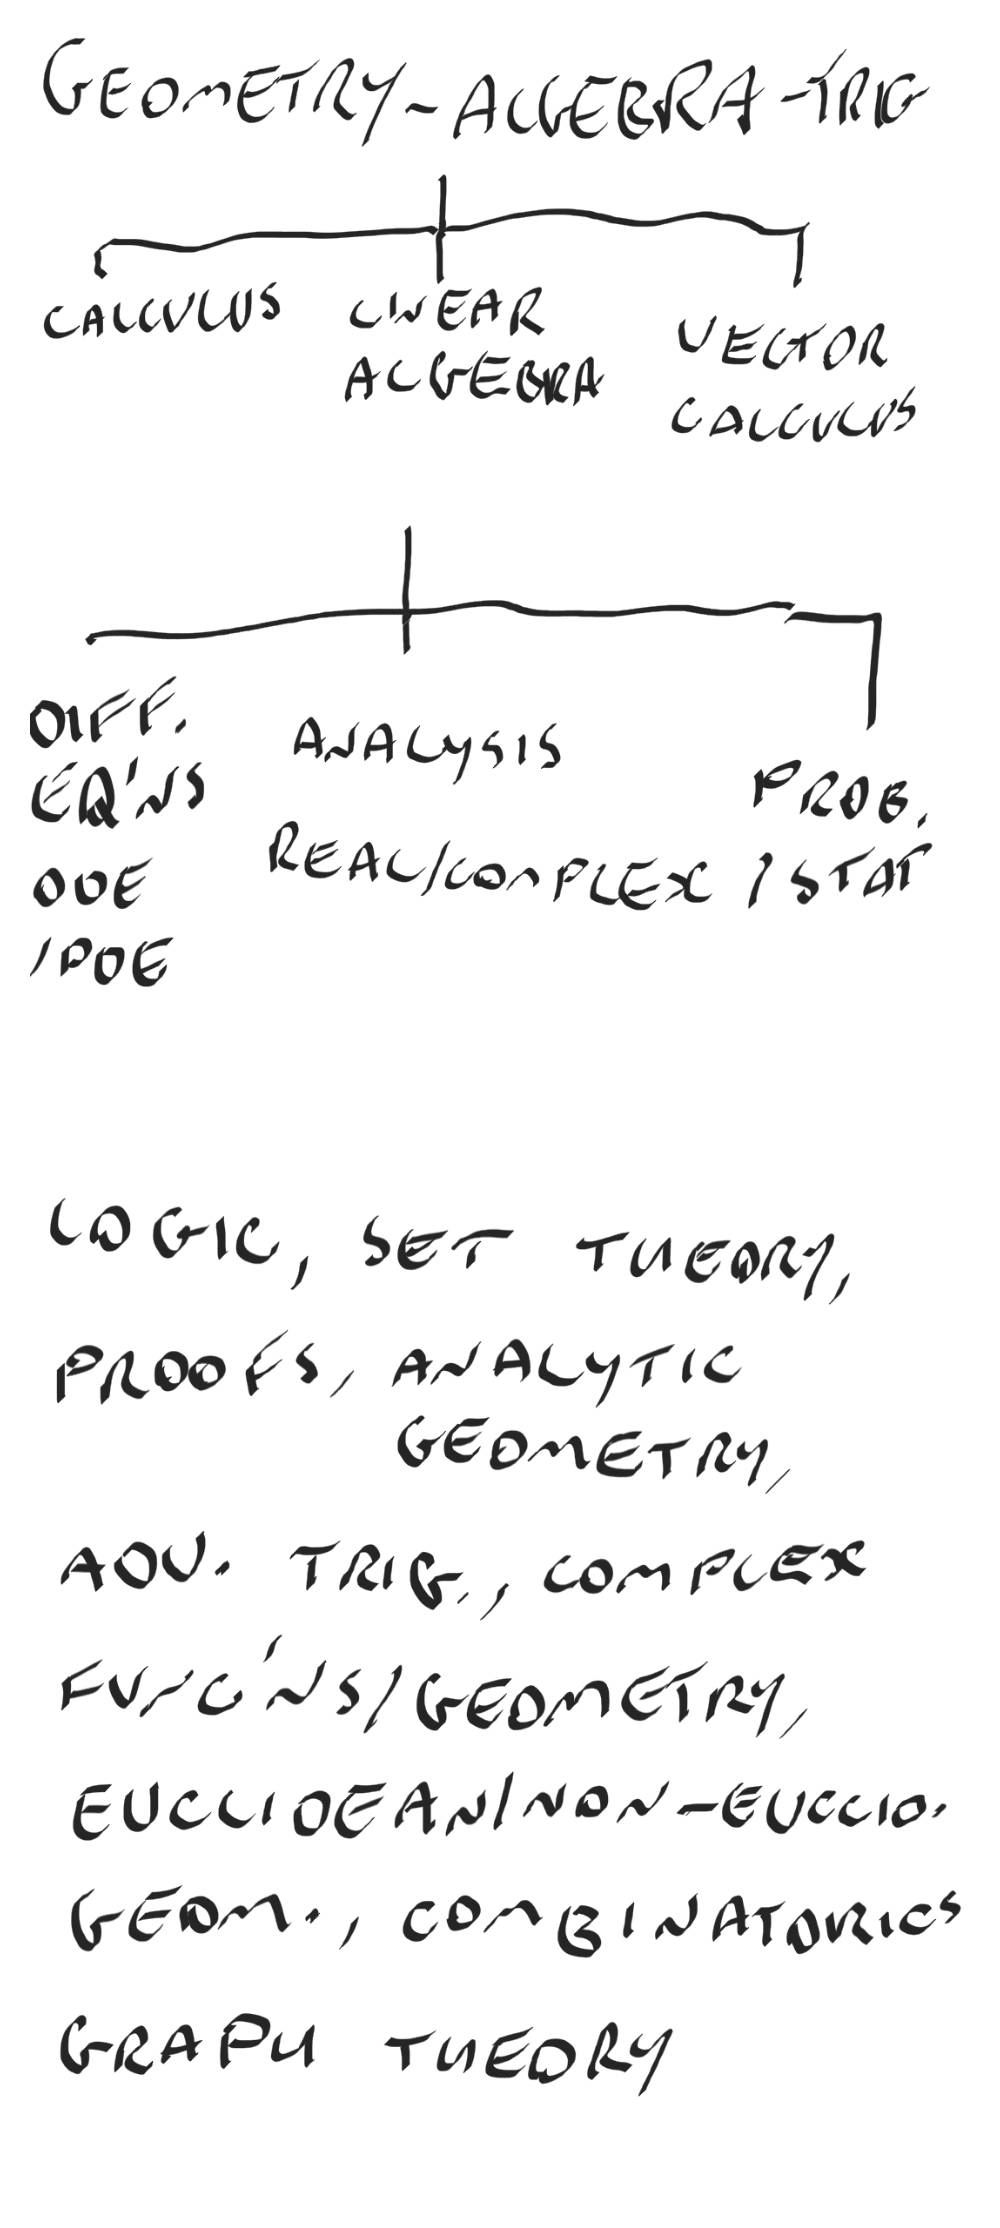 GEOMETRY-ALGEBRA-TRIG
CALCULUS LINEAR ALGEBRA VECTOR CALCULUS
DIFF. EQ'NS ODE /PDE
ANALYSIS REAL/COMPLEX
PROB. /STAT
LOGIC, SET THEORY,
PROOFS, ANALYTIC
GEOMETRY,
ADV. TRIG., COMPLEX
FUNC'NS/GEOMETRY,
EUCLIDEAN/NON-EUCLID.
GEOM., COMBINATORICS
GRAPH THEORY